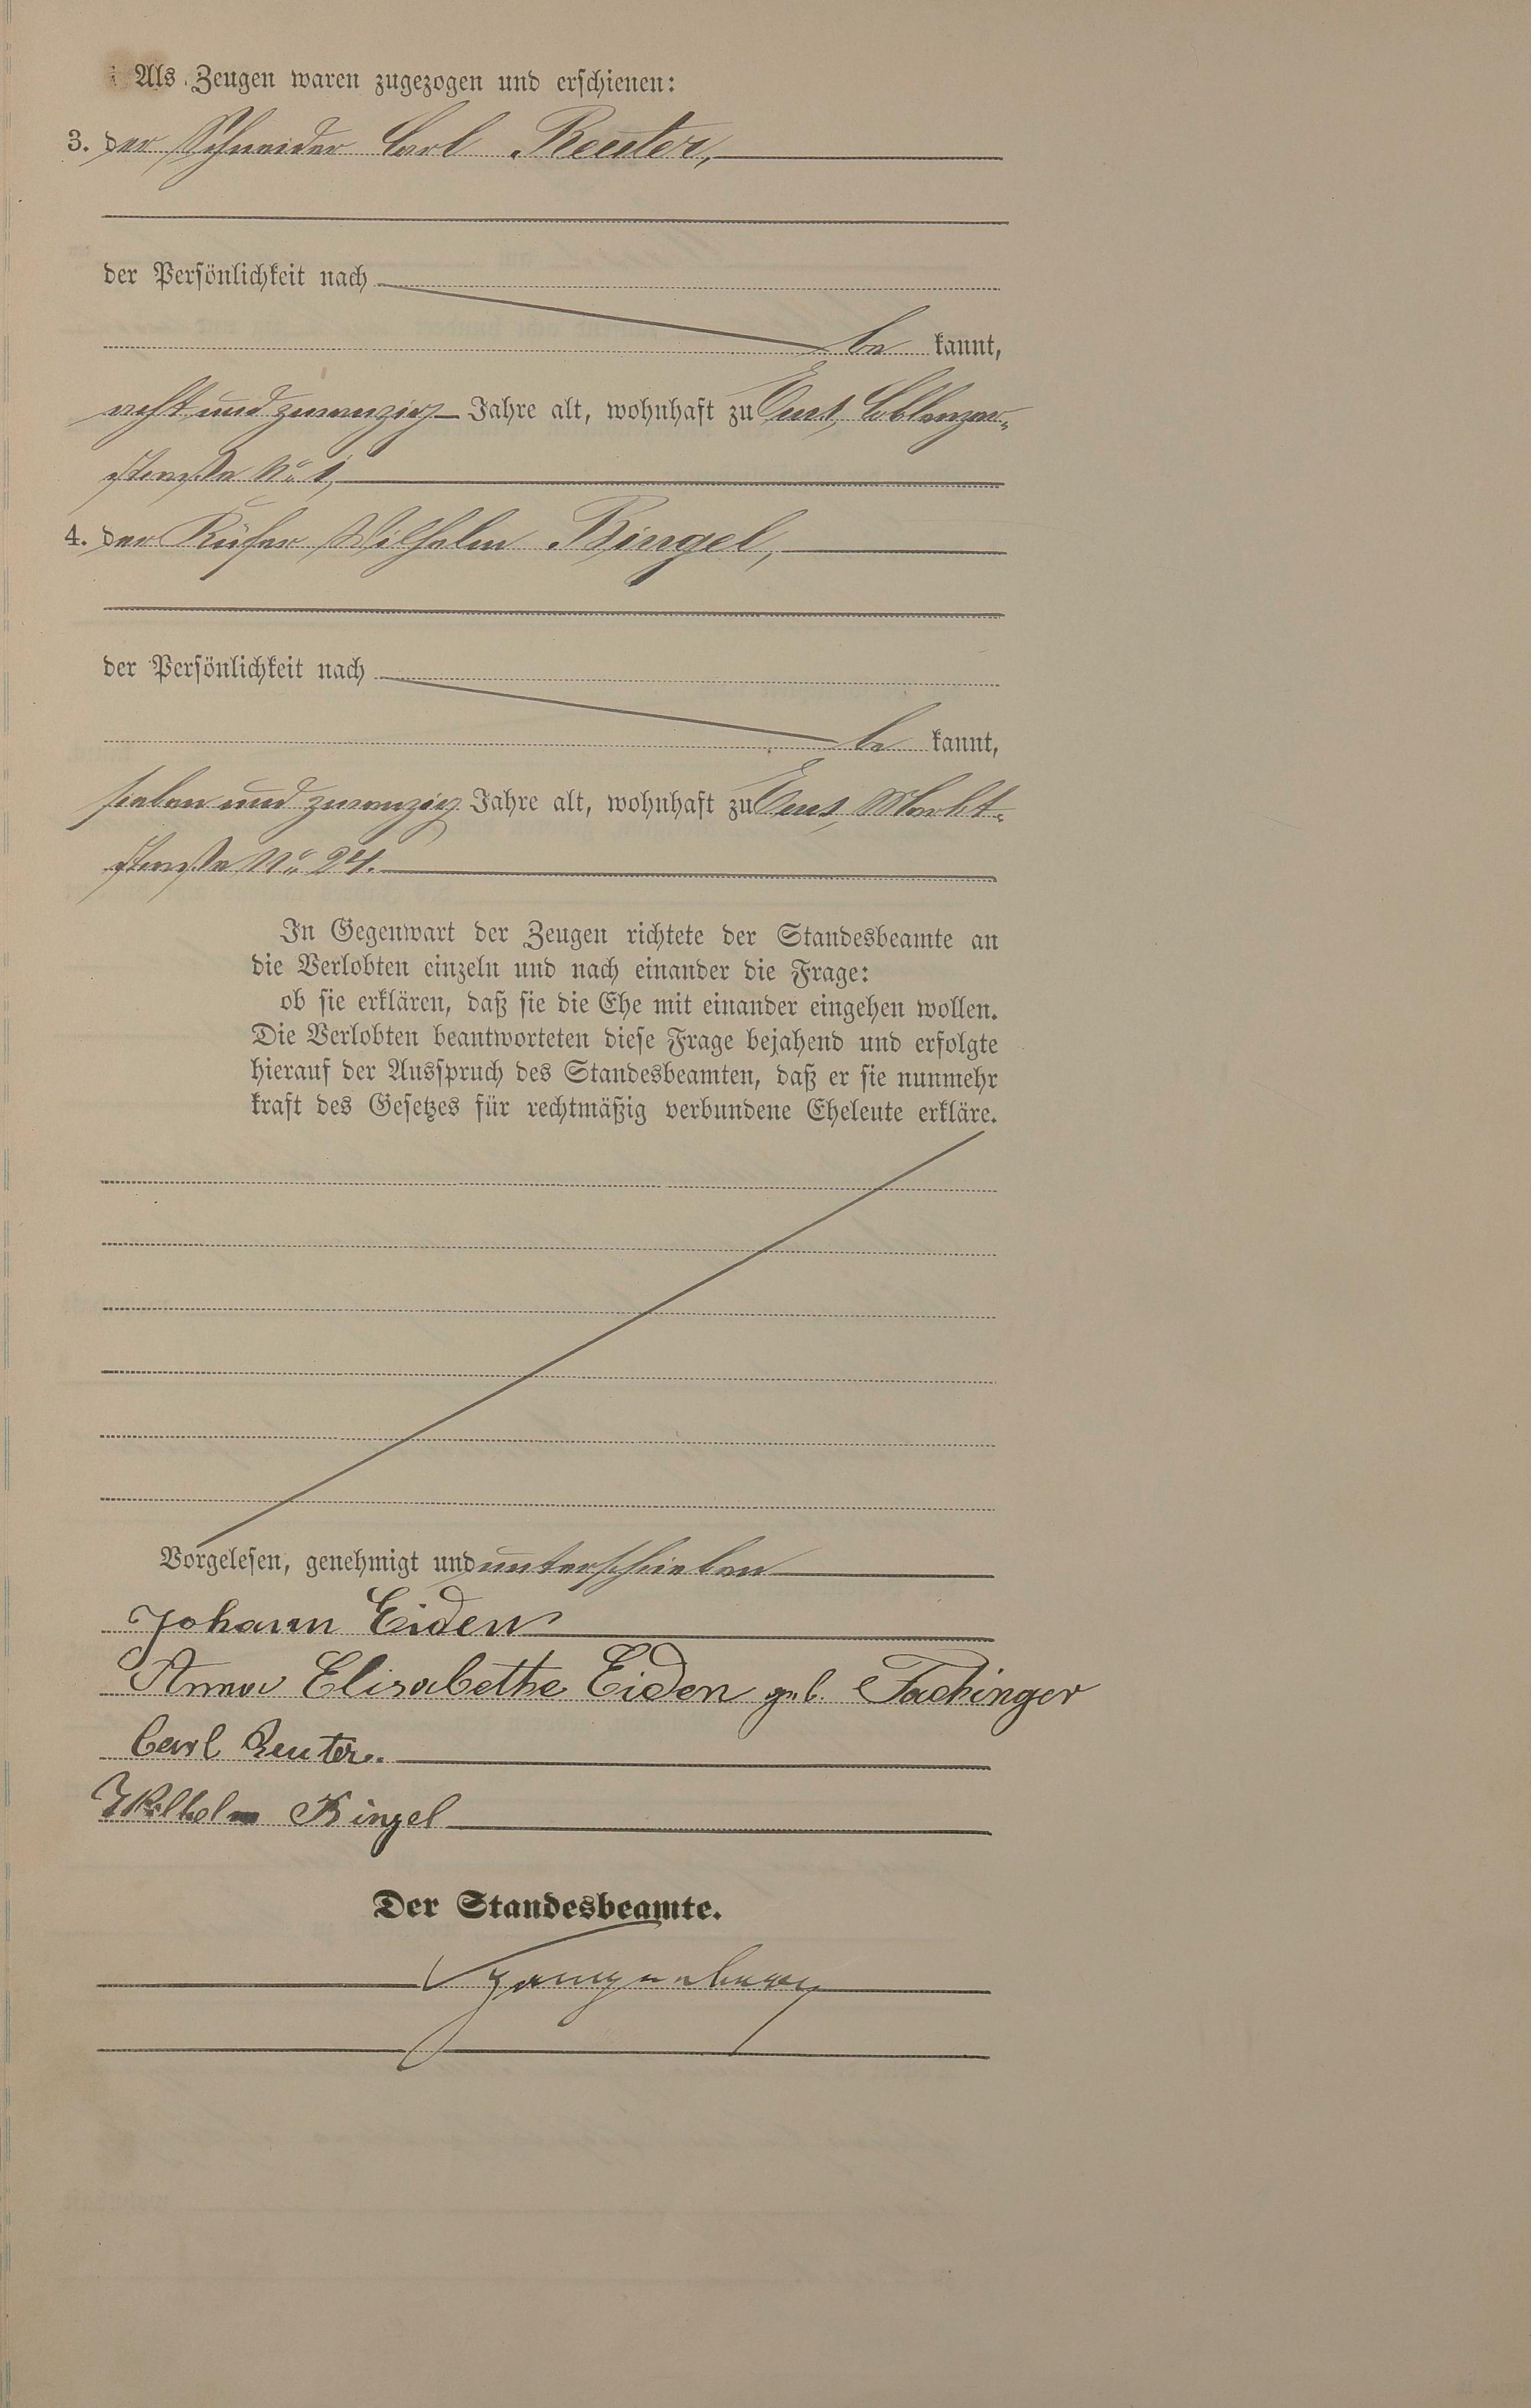 Als Zeugen waren zugezogen und erschienen:
3. der Schneider Carl Reuter,
der Persönlichkeit nach
be kannt,
acht und zwanzig Jahre alt, wohnhaft zu Ems, Coblenzer-
straße No. 1,
4. der Küfer Wilhelm Bingel,
der Persönlichkeit nach
be kannt,
sieben und zwanzig Jahre alt, wohnhaft zu Ems, Markt-
straße No. 24.
In Gegenwart der Zeugen richtete der Standesbeamte an
die Verlobten einzeln und nach einander die Frage:
ob sie erklären, daß sie die Ehe mit einander eingehen wollen.
Die Verlobten beantworteten diese Frage bejahend und erfolgte
hierauf der Ausspruch des Standesbeamten, daß er sie nunmehr
kraft des Gesetzes für rechtmäßig verbundene Eheleute erkläre.
Vorgelesen, genehmigt und unterschrieben
Johann Eiden
Anna Elisabethe Eiden geb. Fachinger
Carl Reuter.
Wilhelm Bingel
Der Standesbeamte.